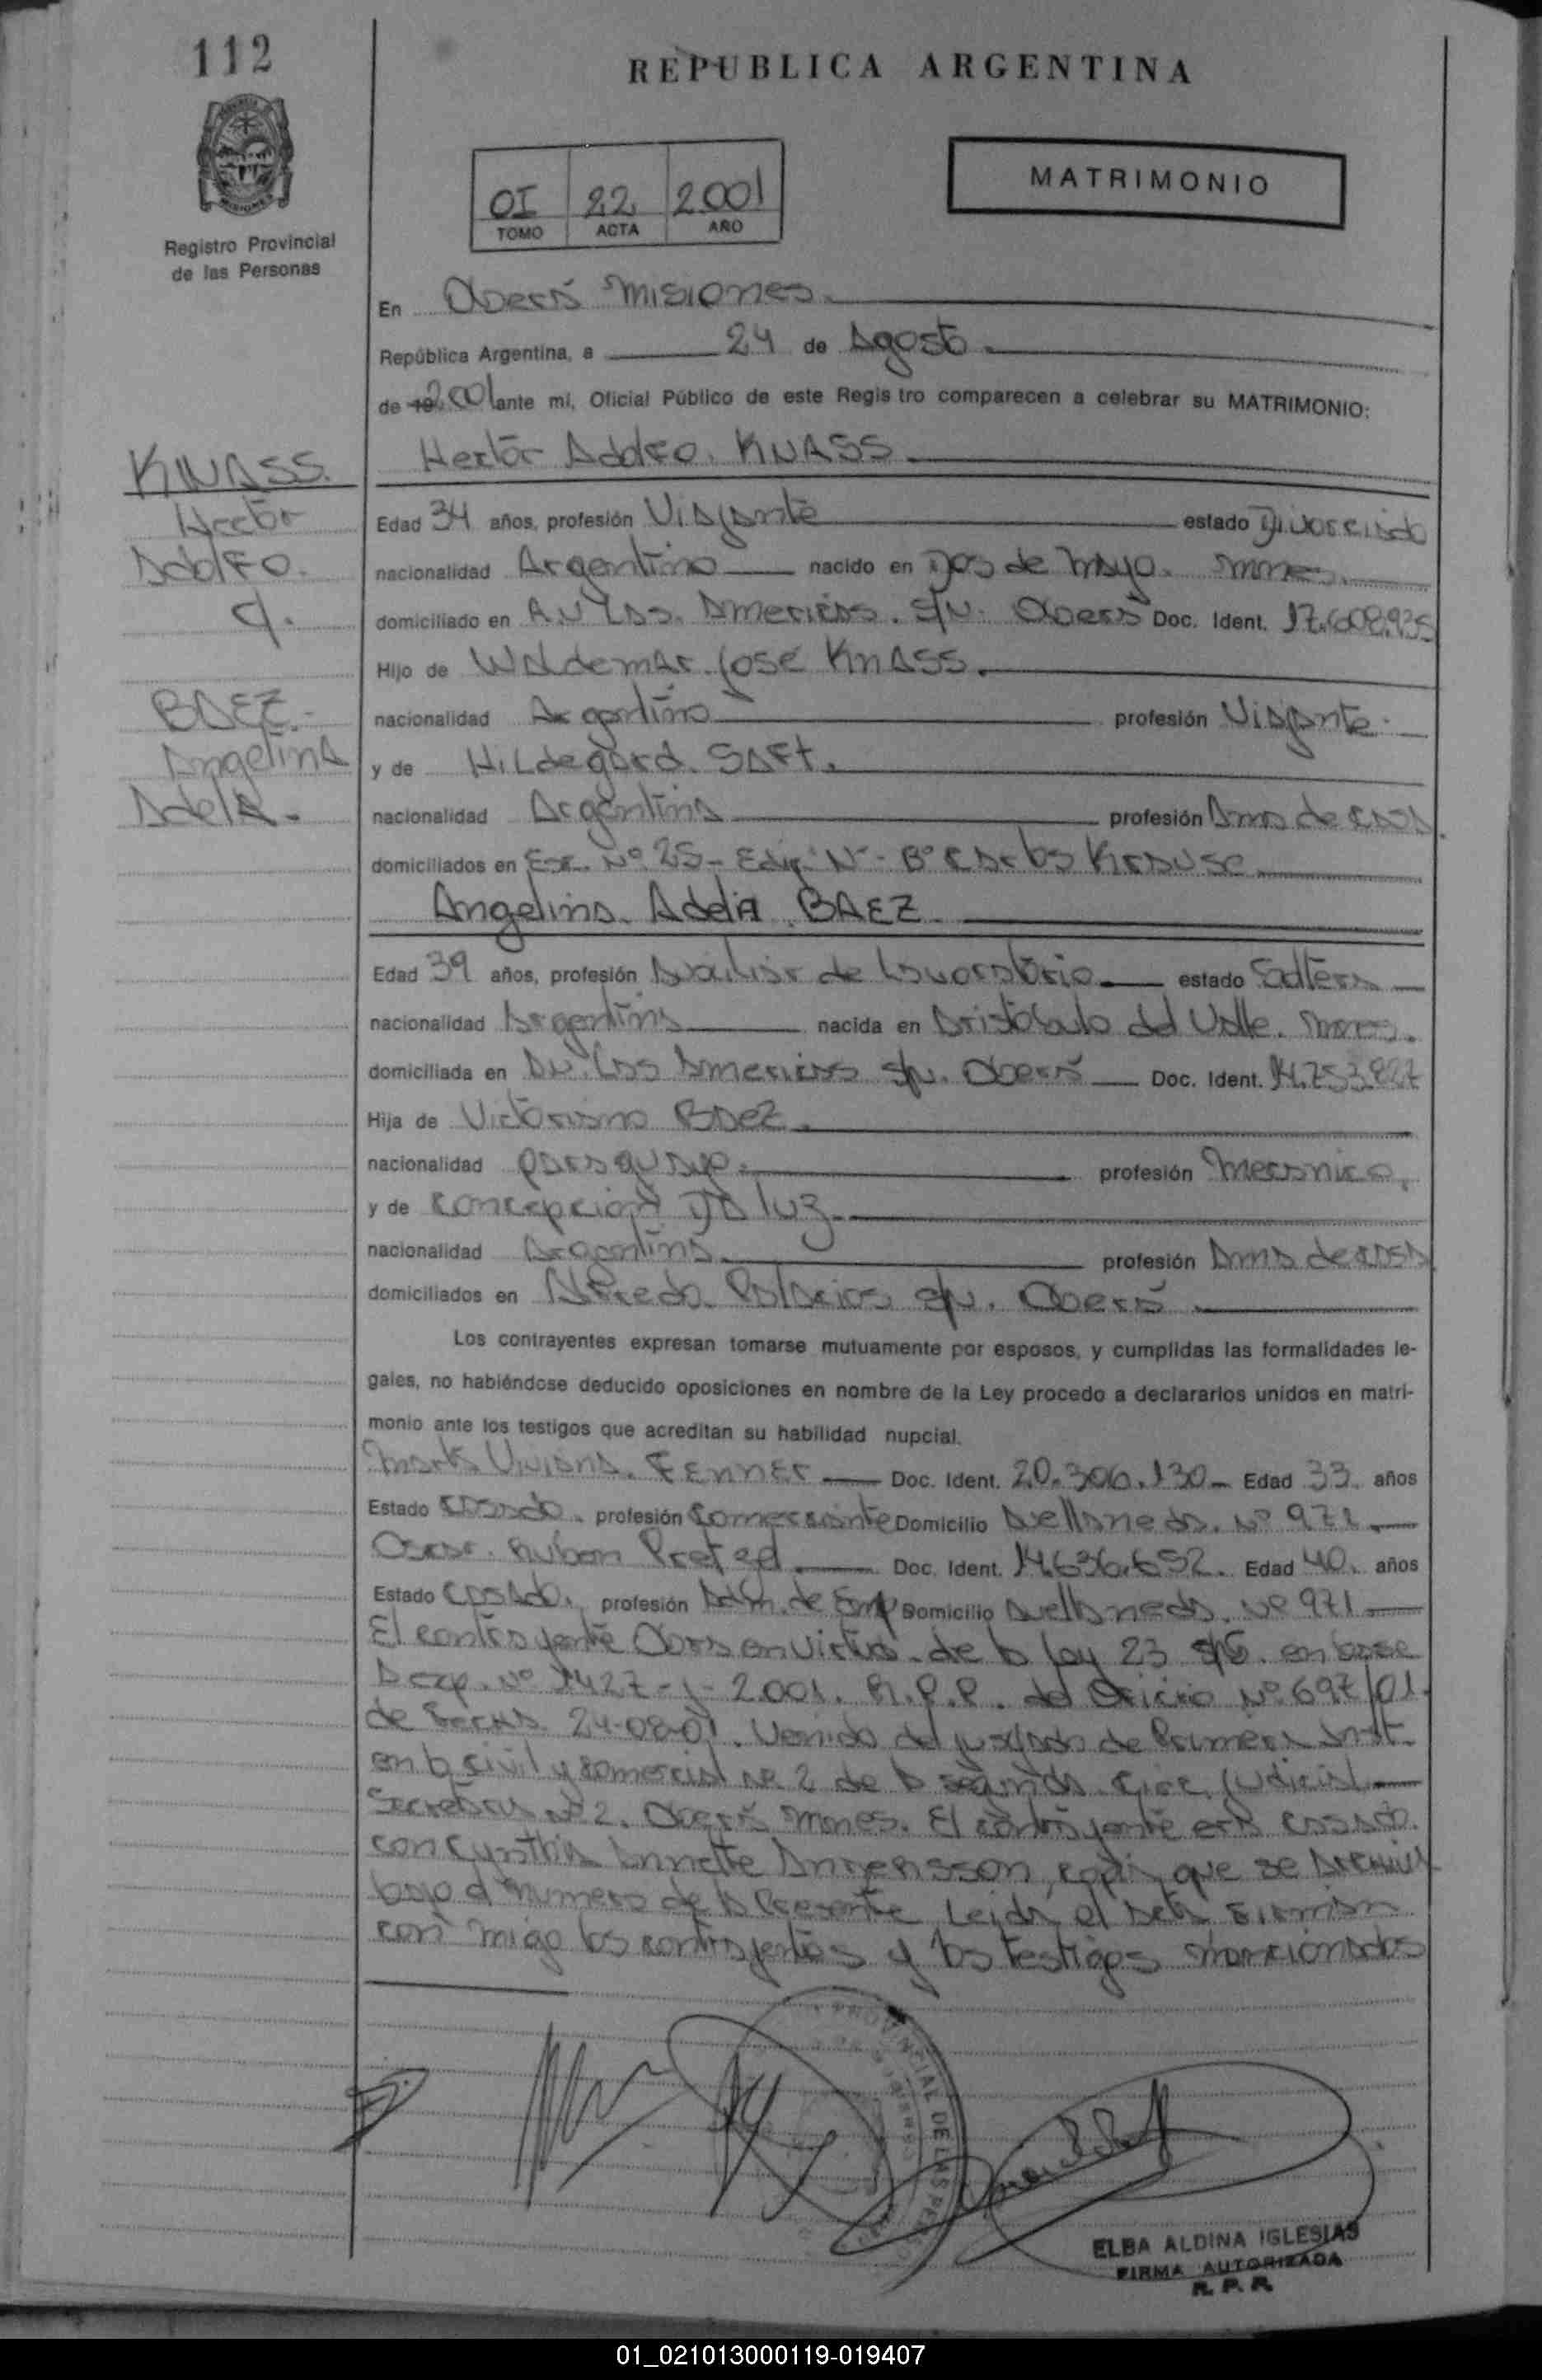 112
REPUBLICA ARGENTINA
MATRIMONIO
OI 22 2001
TOMO ACTA AÑO
MISIONES
Registro Provincial
de las Personas
En Oberá Misiones.
República Argentina, a 24 de Agosto.
de 19 2001 ante mi, Oficial Público de este Regis tro comparecen a celebrar su MATRIMONIO:
Hector Adolfo. KNASS
KNASS.
Hector
Adolfo.
c/.
BAEZ.-
Angelina
Adela.-
Edad 34 años, profesión Viajante estado Divorciado
nacionalidad Argentino nacido en Dos de Mayo. Mnes.
domiciliado en Av Las Americas. S/N. Oberá Doc. Ident. 17.608.935
Hijo de Waldemar José KNASS.
nacionalidad Argentino profesión Viajante.
y de Hildegard. SAFT.
nacionalidad Argentina profesión Ama de casa.
domiciliados en Nº 25- Edif. Nº- Bº Carlos Krause
Angelina Adela BAEZ
Edad 39 años, profesión Auxiliar de Lavoratorio estado Soltera
nacionalidad Argentina nacida en Aristóbulo del Valle. Mnes.
domiciliada en Av. Las Americas S/N. Oberá Doc. Ident. 14.253.827
Hija de Victoriano BAEZ.
nacionalidad paraguayo. profesión Mecanico.
y de Concepcion Da luz.
nacionalidad Argentina. profesión Ama de casa
domiciliados en Alfredo Palacios S/N. Oberá
Los contrayentes expresan tomarse mutuamente por esposos, y cumplidas las formalidades le-
gales, no habiéndose deducido oposiciones en nombre de la Ley procedo a declararlos unidos en matri-
monio ante los testigos que acreditan su habilidad nupcial.
Marta Viviana. FENNER Doc. Ident. 20.306.130 Edad 33 años
Estado casada. profesión Comerciante Domicilio Avellaneda. Nº 971
Oscar. Ruben Pretzel Doc. Ident. 14.636.652. Edad 40. años
Estado casado. profesión Adm. de Emp Domicilio Avellaneda. Nº 971
El contrayente Obra en virtud de la ley 23 515. en base
A exp. Nº 1427-J-2.001. R.P.P. del Oficio Nº 697/01.
de fecha 24-08-01. Venido del juzgado de Primera Inst.
en lo civil y comercial Nº 2 de la segunda circ. judicial
Secretaria Nº 2. Oberá Mnes. El contrayente era casado.
con Cynthia Annette, copia que se archiva
bajo el numero de la Presente. Leida el acta Firman
con migo los contrayentes y los testigos mencionados
PROVINCIAL DE LAS
ELBA ALDINA IGLESIAS
FIRMA AUTORIZADA
R. P. P.
01_021013000119-019407